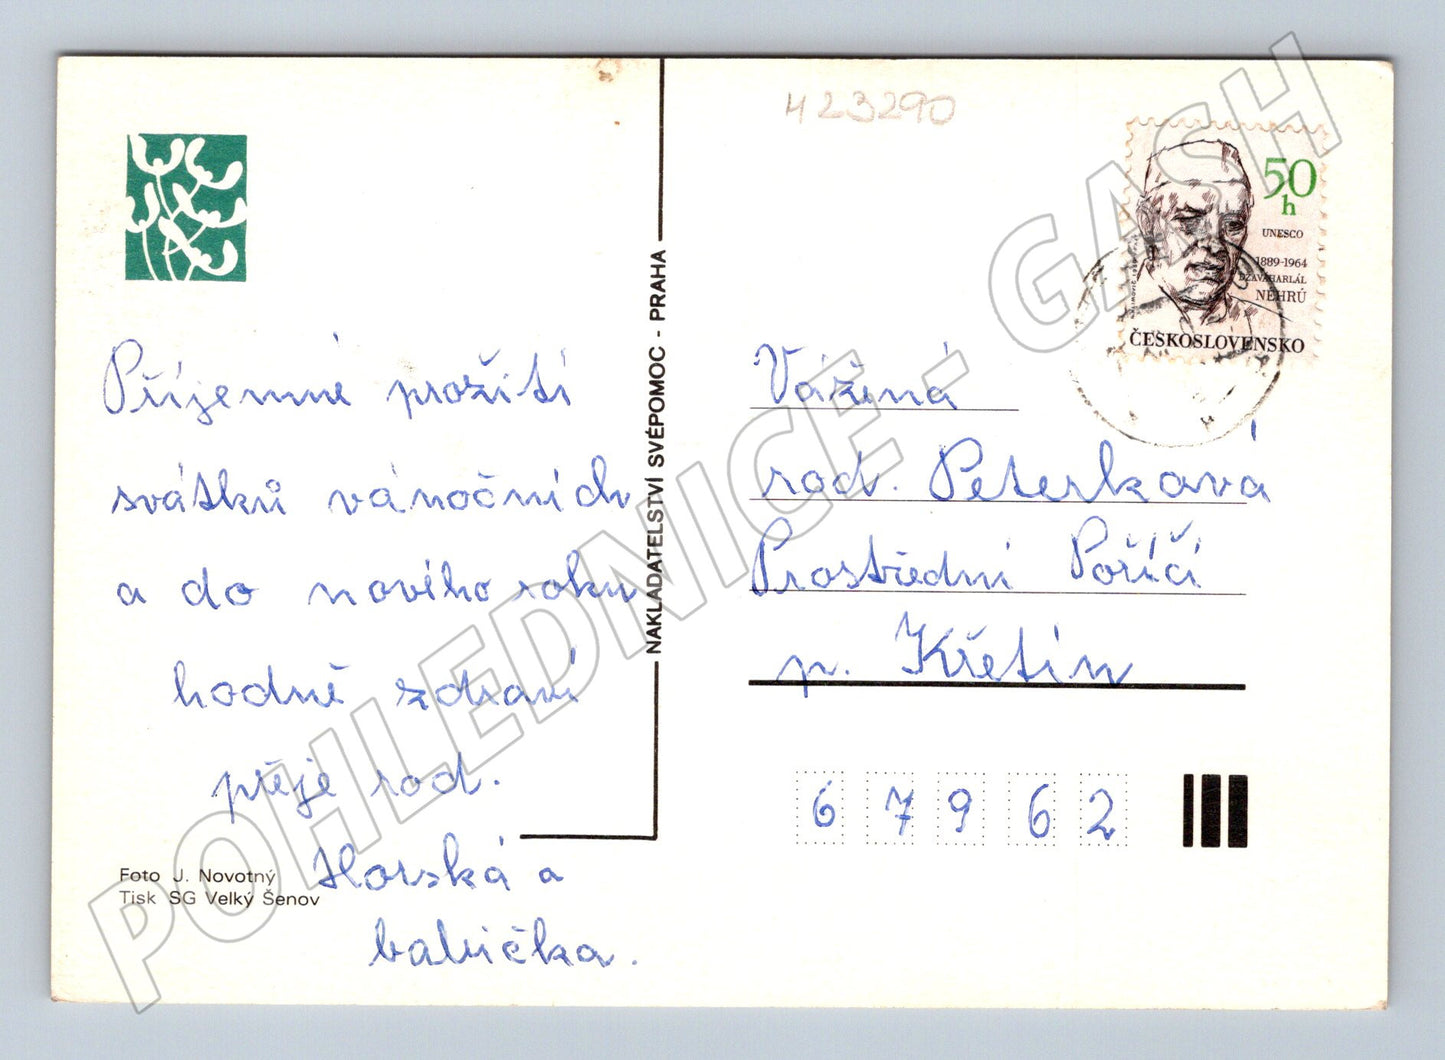 423290
50
h
UNESCO
1889-1964
DŽAVAHARLÁL
NÉHRÚ
ČESKOSLOVENSKO
Příjemné prožití
svátků vánočních
a do nového roku
hodně zdraví
přeje rod.
Horská a
babička.
Foto J. Novotný
Tisk SG Velký Šenov
NAKLADATELSTVÍ SVÉPOMOC - PRAHA
Vážená
rod. Peterková
Prostřední Poříčí
p. Křetín
67962
POHLEDNICE - GASH